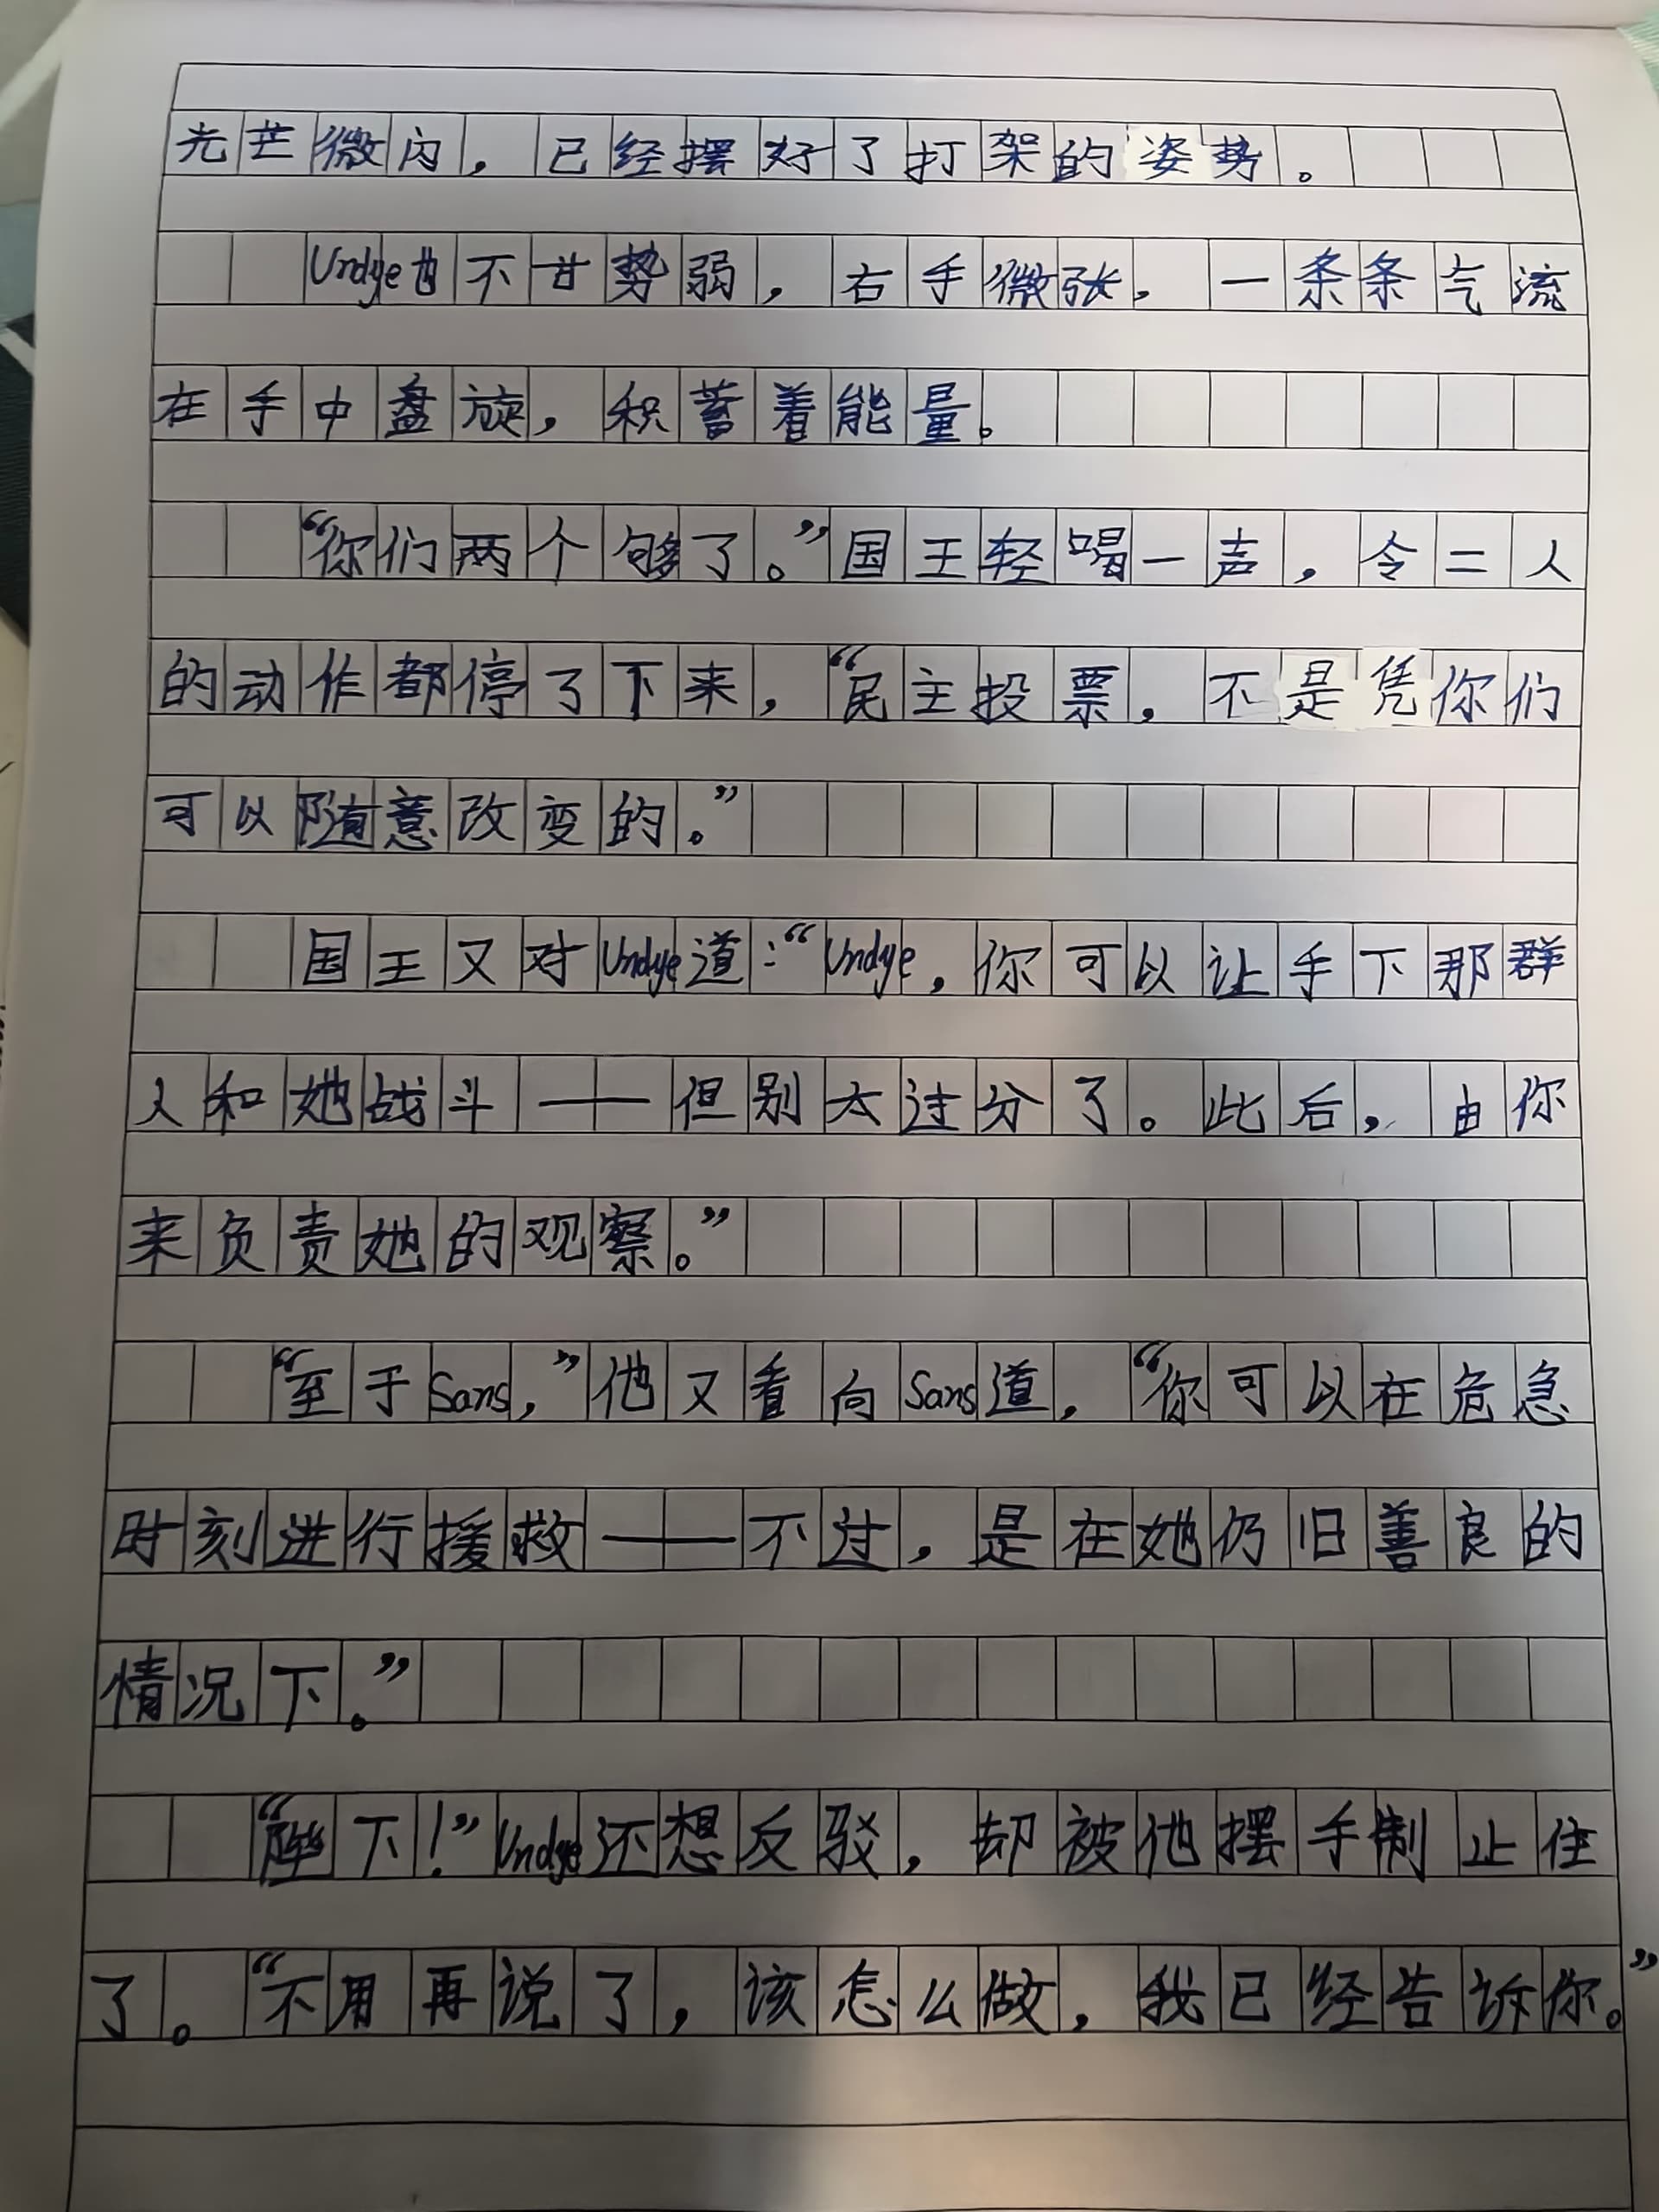 光芒微闪，已经摆好了打架的姿势。
Undye也不甘势弱，右手微张，一条条气流
在手中盘旋，积蓄着能量。
“你们两个够了。”国王轻喝一声，令二人
的动作都停了下来，“民主投票，不是凭你们
可以随意改变的。”
国王又对Undye道：“Undye，你可以让手下那群
人和她战斗——但别太过分了。此后，由你
来负责她的观察。”
“至于Sans，”他又看向Sans道，“你可以在危急
时刻进行援救——不过，是在她仍旧善良的
情况下。”
“陛下！”Undye还想反驳，却被他摆手制止住
了。“不用再说了，该怎么做，我已经告诉你。”